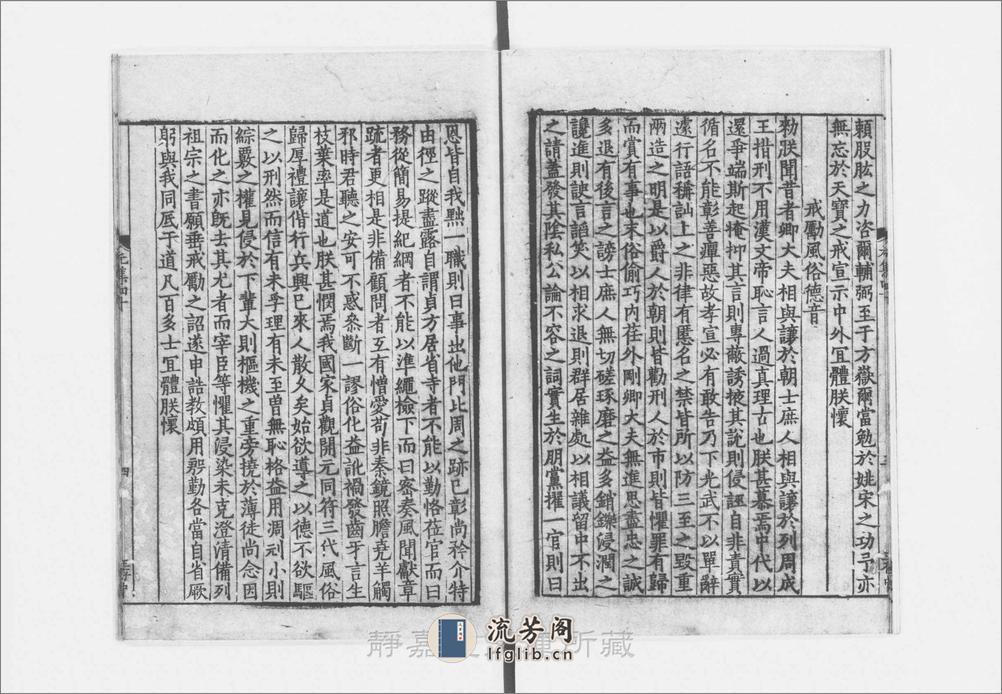 賴股肱之力咨爾輔弼至于方嶽爾當勉於姚宋之功予亦
無忘於天寶之戒宣示中外宜體朕懷
戒勵風俗德音
勑朕聞昔者卿大夫相與讓於朝士庶人相與讓於列周成
王措刑不用漢文帝恥言人過真理古也朕甚慕焉中代以
還爭端斯起掩抑其言則專蔽誘掖其說則侵誣自非責實
循名不能彰善癉惡故孝宣必有敢告乃下光武不以單辭
遽行語稱訕上之非律有匿名之禁皆所以防三至之毀重
兩造之明是以爵人於朝則皆勸刑人於市則皆懼罪有歸
而賞有事也末俗偷巧內荏外剛卿大夫無進思盡忠之誠
多退有後言之謗士庶人無切磋琢磨之益多銷鑠浸潤之
讒進則諛言諂笑以相求退則群居雜處以相議留中不出
之請蓋發其陰私公論不容之詞實生於朋黨擢一官則曰
恩皆自我黜一職則曰事出他門比周之跡已彰尚矜介特
由徑之蹤盡露自謂貞方居省寺者不能以勤恪莅官而曰
務從簡易提紀綱者不能以準繩儉下而曰密奏風聞獻章
疏者更相是非備顧問者互有憎愛苟非秦鏡照膽堯羊觸
邪時君聽之安可不惑叅斷一謬俗化益訛禍發齒牙言生
枝葉率是道也朕甚憫焉我國家貞觀開元同符三代風俗
歸厚禮讓偕行兵興已來人散久矣始欲導之以德不欲驅
之以刑然而信有未孚理有未至曾無恥格益用凋刓小則
綜覈之權見侵於下輩大則樞機之重旁撓於薄徒尚念因
而化之亦旣去其尤者而宰臣等懼其浸染未克澄清備列
祖宗之書願垂戒勵之詔遂申誥教頗用殷勤各當自省厥
躬與我同厎于道凡百多士宜體朕懷
元集四十
四
流芳阁
lfglib.cn
靜嘉 所藏